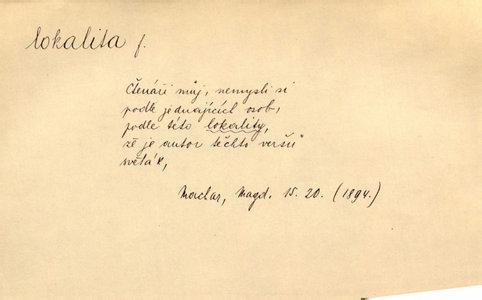 lokalita f.
Čtenáři můj, nemysli si
podle jednajících osob,
podle této lokality,
že je autor těchto veršů
světák,
Machar, Magd. 15. 20. (1894.)